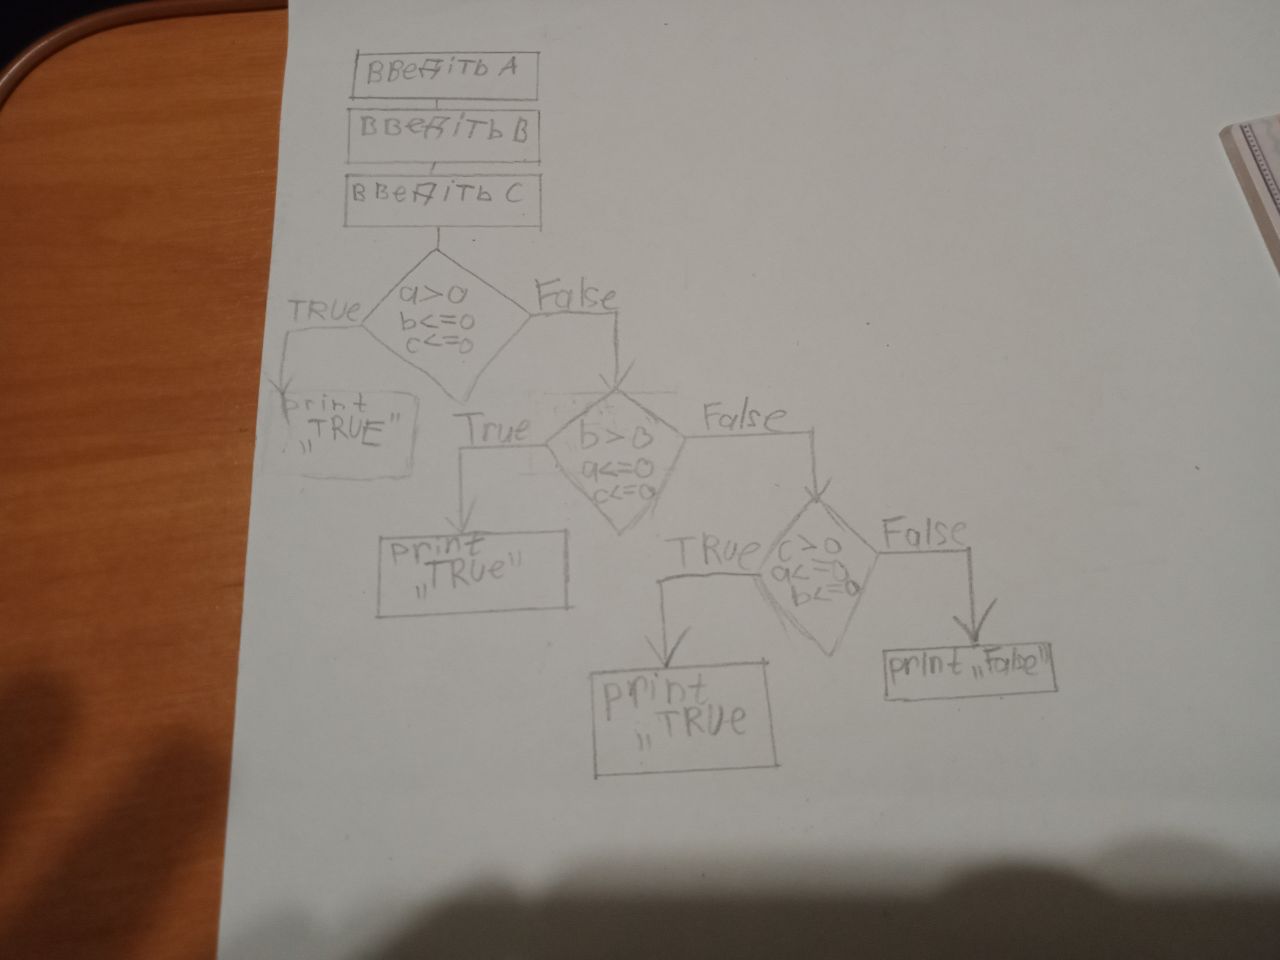 ввеДіть A
ввеДіть B
ввеДіть C
a>0
b<=0
c<=0
TRUe
False
print
„TRUE"
b>0
a<=0
c<=0
True
False
print
„TRUe"
c>0
a<=0
b<=0
TRUe
False
print
„TRUe
print „False"